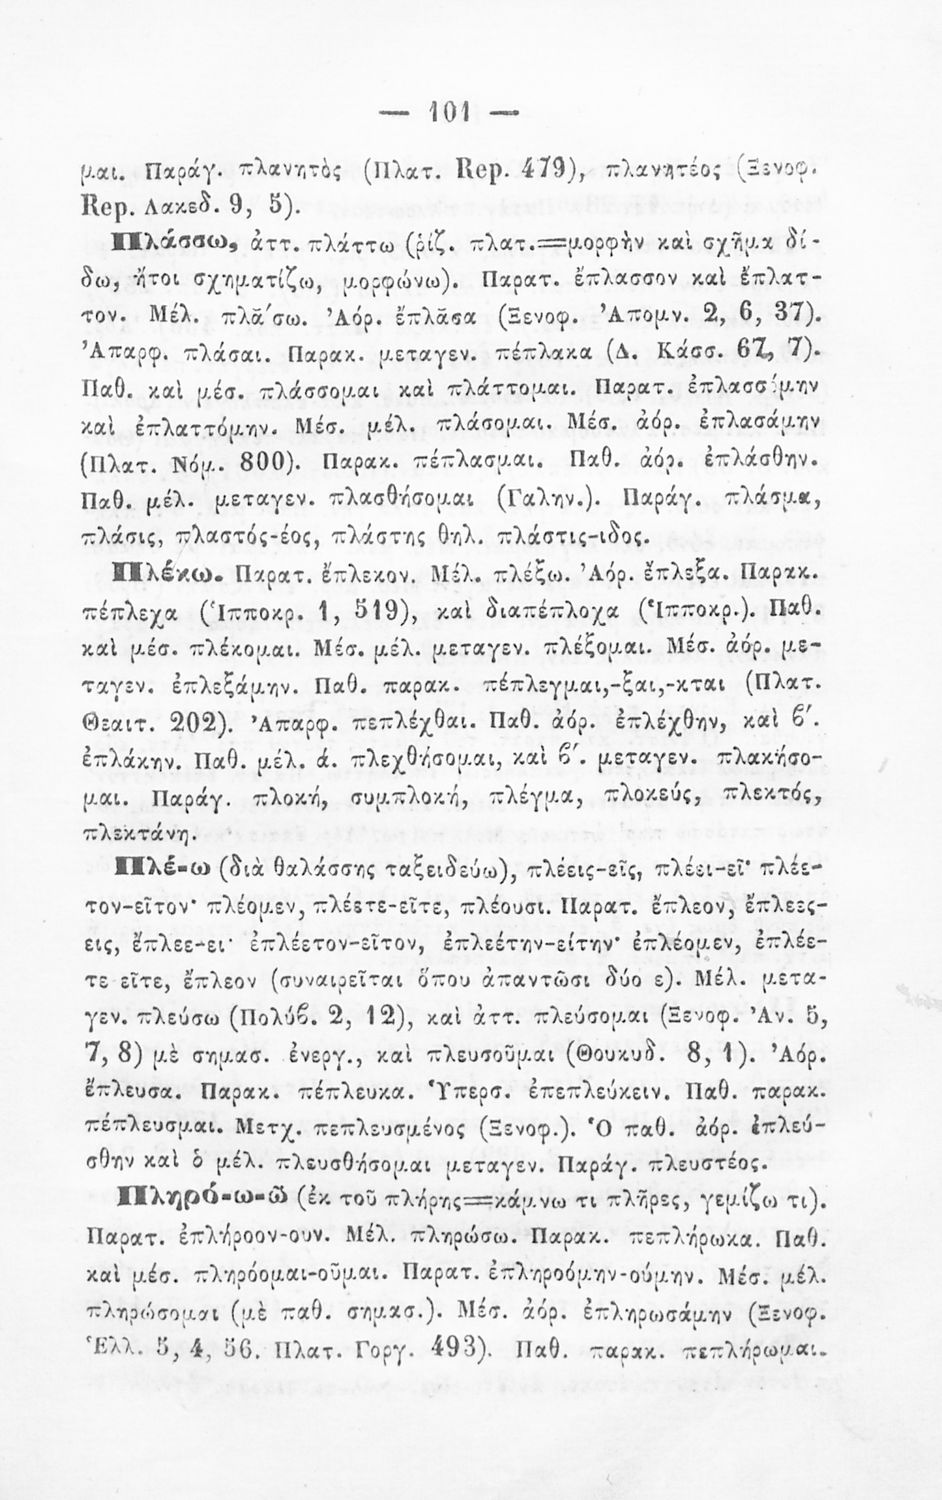 — 101 —
μαι. Παράγ. πλανητὸς (Πλατ. Rep. 479), πλανητέος (Ξενοφ.
Rep. Λακεδ. 9, 5).
Πλάσσω, ἀττ. πλάττω (ῥίζ. πλατ.=μορφὴν καὶ σχῆμα δί-
δω, ἤτοι σχηματίζω, μορφώνω). Παρατ. ἔπλασσον καὶ ἔπλατ-
τον. Μέλ. πλᾰ́σω. Ἀόρ. ἔπλᾰσα (Ξενοφ. Ἀπομν. 2, 6, 37).
Ἀπαρφ. πλάσαι. Παρακ. μεταγεν. πέπλακα (Δ. Κάσσ. 67, 7).
Παθ. καὶ μέσ. πλάσσομαι καὶ πλάττομαι. Παρατ. ἐπλασσόμην
καὶ ἐπλαττόμην. Μέσ. μέλ. πλάσομαι. Μέσ. ἀόρ. ἐπλασάμην
(Πλατ. Νόμ. 800). Παρακ. πέπλασμαι. Παθ. ἀόρ. ἐπλάσθην.
Παθ. μέλ. μεταγεν. πλασθήσομαι (Γαλην.). Παράγ. πλάσμα,
πλάσις, πλαστός-έος, πλάστης θηλ. πλάστις-ιδος.
Πλέκω. Παρατ. ἔπλεκον. Μέλ. πλέξω. Ἀόρ. ἔπλεξα. Παρακ.
πέπλεχα (Ἱπποκρ. 1, 519), καὶ διαπέπλοχα (Ἱπποκρ.). Παθ.
καὶ μέσ. πλέκομαι. Μέσ. μέλ. μεταγεν. πλέξομαι. Μέσ. ἀόρ. με-
ταγεν. ἐπλεξάμην. Παθ. παρακ. πέπλεγμαι,-ξαι,-κται (Πλατ.
Θεαιτ. 202). Ἀπαρφ. πεπλέχθαι. Παθ. ἀόρ. ἐπλέχθην, καὶ ϐ′.
ἐπλάκην. Παθ. μέλ. ά. πλεχθήσομαι, καὶ ϐ′. μεταγεν. πλακήσο-
μαι. Παράγ. πλοκή, συμπλοκή, πλέγμα, πλοκεύς, πλεκτός,
πλεκτάνη.
Πλέ-ω (διὰ θαλάσσης ταξειδεύω), πλέεις-εῖς, πλέει-εῖ· πλέε-
τον-εῖτον· πλέομεν, πλέετε-εῖτε, πλέουσι. Παρατ. ἔπλεον, ἔπλεες-
εις, ἔπλεε-ει· ἐπλέετον-εῖτον, ἐπλεέτην-είτην· ἐπλέομεν, ἐπλέε-
τε εῖτε, ἔπλεον (συναιρεῖται ὅπου ἀπαντῶσι δύο ε). Μέλ. μετα-
γεν. πλεύσω (Πολύϐ. 2, 12), καὶ ἀττ. πλεύσομαι (Ξενοφ. Ἀν. 5,
7, 8) μὲ σημασ. ἐνεργ., καὶ πλευσοῦμαι (Θουκυδ. 8, 1). Ἀόρ.
ἔπλευσα. Παρακ. πέπλευκα. Ὑπερσ. ἐπεπλεύκειν. Παθ. παρακ.
πέπλευσμαι. Μετχ. πεπλευσμένος (Ξενοφ.). Ὁ παθ. ἀόρ. ἐπλεύ-
σθην καὶ ὁ μέλ. πλευσθήσομαι μεταγεν. Παράγ. πλευστέος.
Πληρό-ω-ῶ (ἐκ τοῦ πλήρης=κάμνω τι πλῆρες, γεμίζω τι).
Παρατ. ἐπλήροον-ουν. Μέλ. πληρώσω. Παρακ. πεπλήρωκα. Παθ.
καὶ μέσ. πληρόομαι-οῦμαι. Παρατ. ἐπληροόμην-ούμην. Μέσ. μέλ.
πληρώσομαι (μὲ παθ. σημασ.). Μέσ. ἀόρ. ἐπληρωσάμην (Ξενοφ.
Ἑλλ. 5, 4, 56. Πλατ. Γοργ. 493). Παθ. παρακ. πεπλήρωμαι.